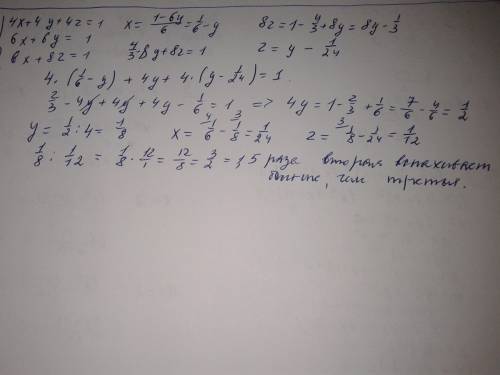 4x+4y+4z=1 x = (1-6y)/6 = 1/6 - y 8z = 1 - 4/3 + 8y = 8y - 1/3
6x+6y = 1 4/3 - 8y + 8z = 1 z = y - 1/24
8x+8z = 1
4·(1/6 - y) + 4y + 4·(y - 1/24) = 1
2/3 - 4y + 4y + 4y - 1/6 = 1 => 4y = 1 - 2/3 + 1/6 = 7/6 - 4/6 = 1/2
y = 1/2 : 4 = 1/8 x = 1/6 - 1/8 = 1/24 z = 1/8 - 1/24 = 1/12
1/8 : 1/12 = 1/8 · 12/1 = 12/8 = 3/2 = 1,5 раза вторая вспахивает
больше, чем третья.